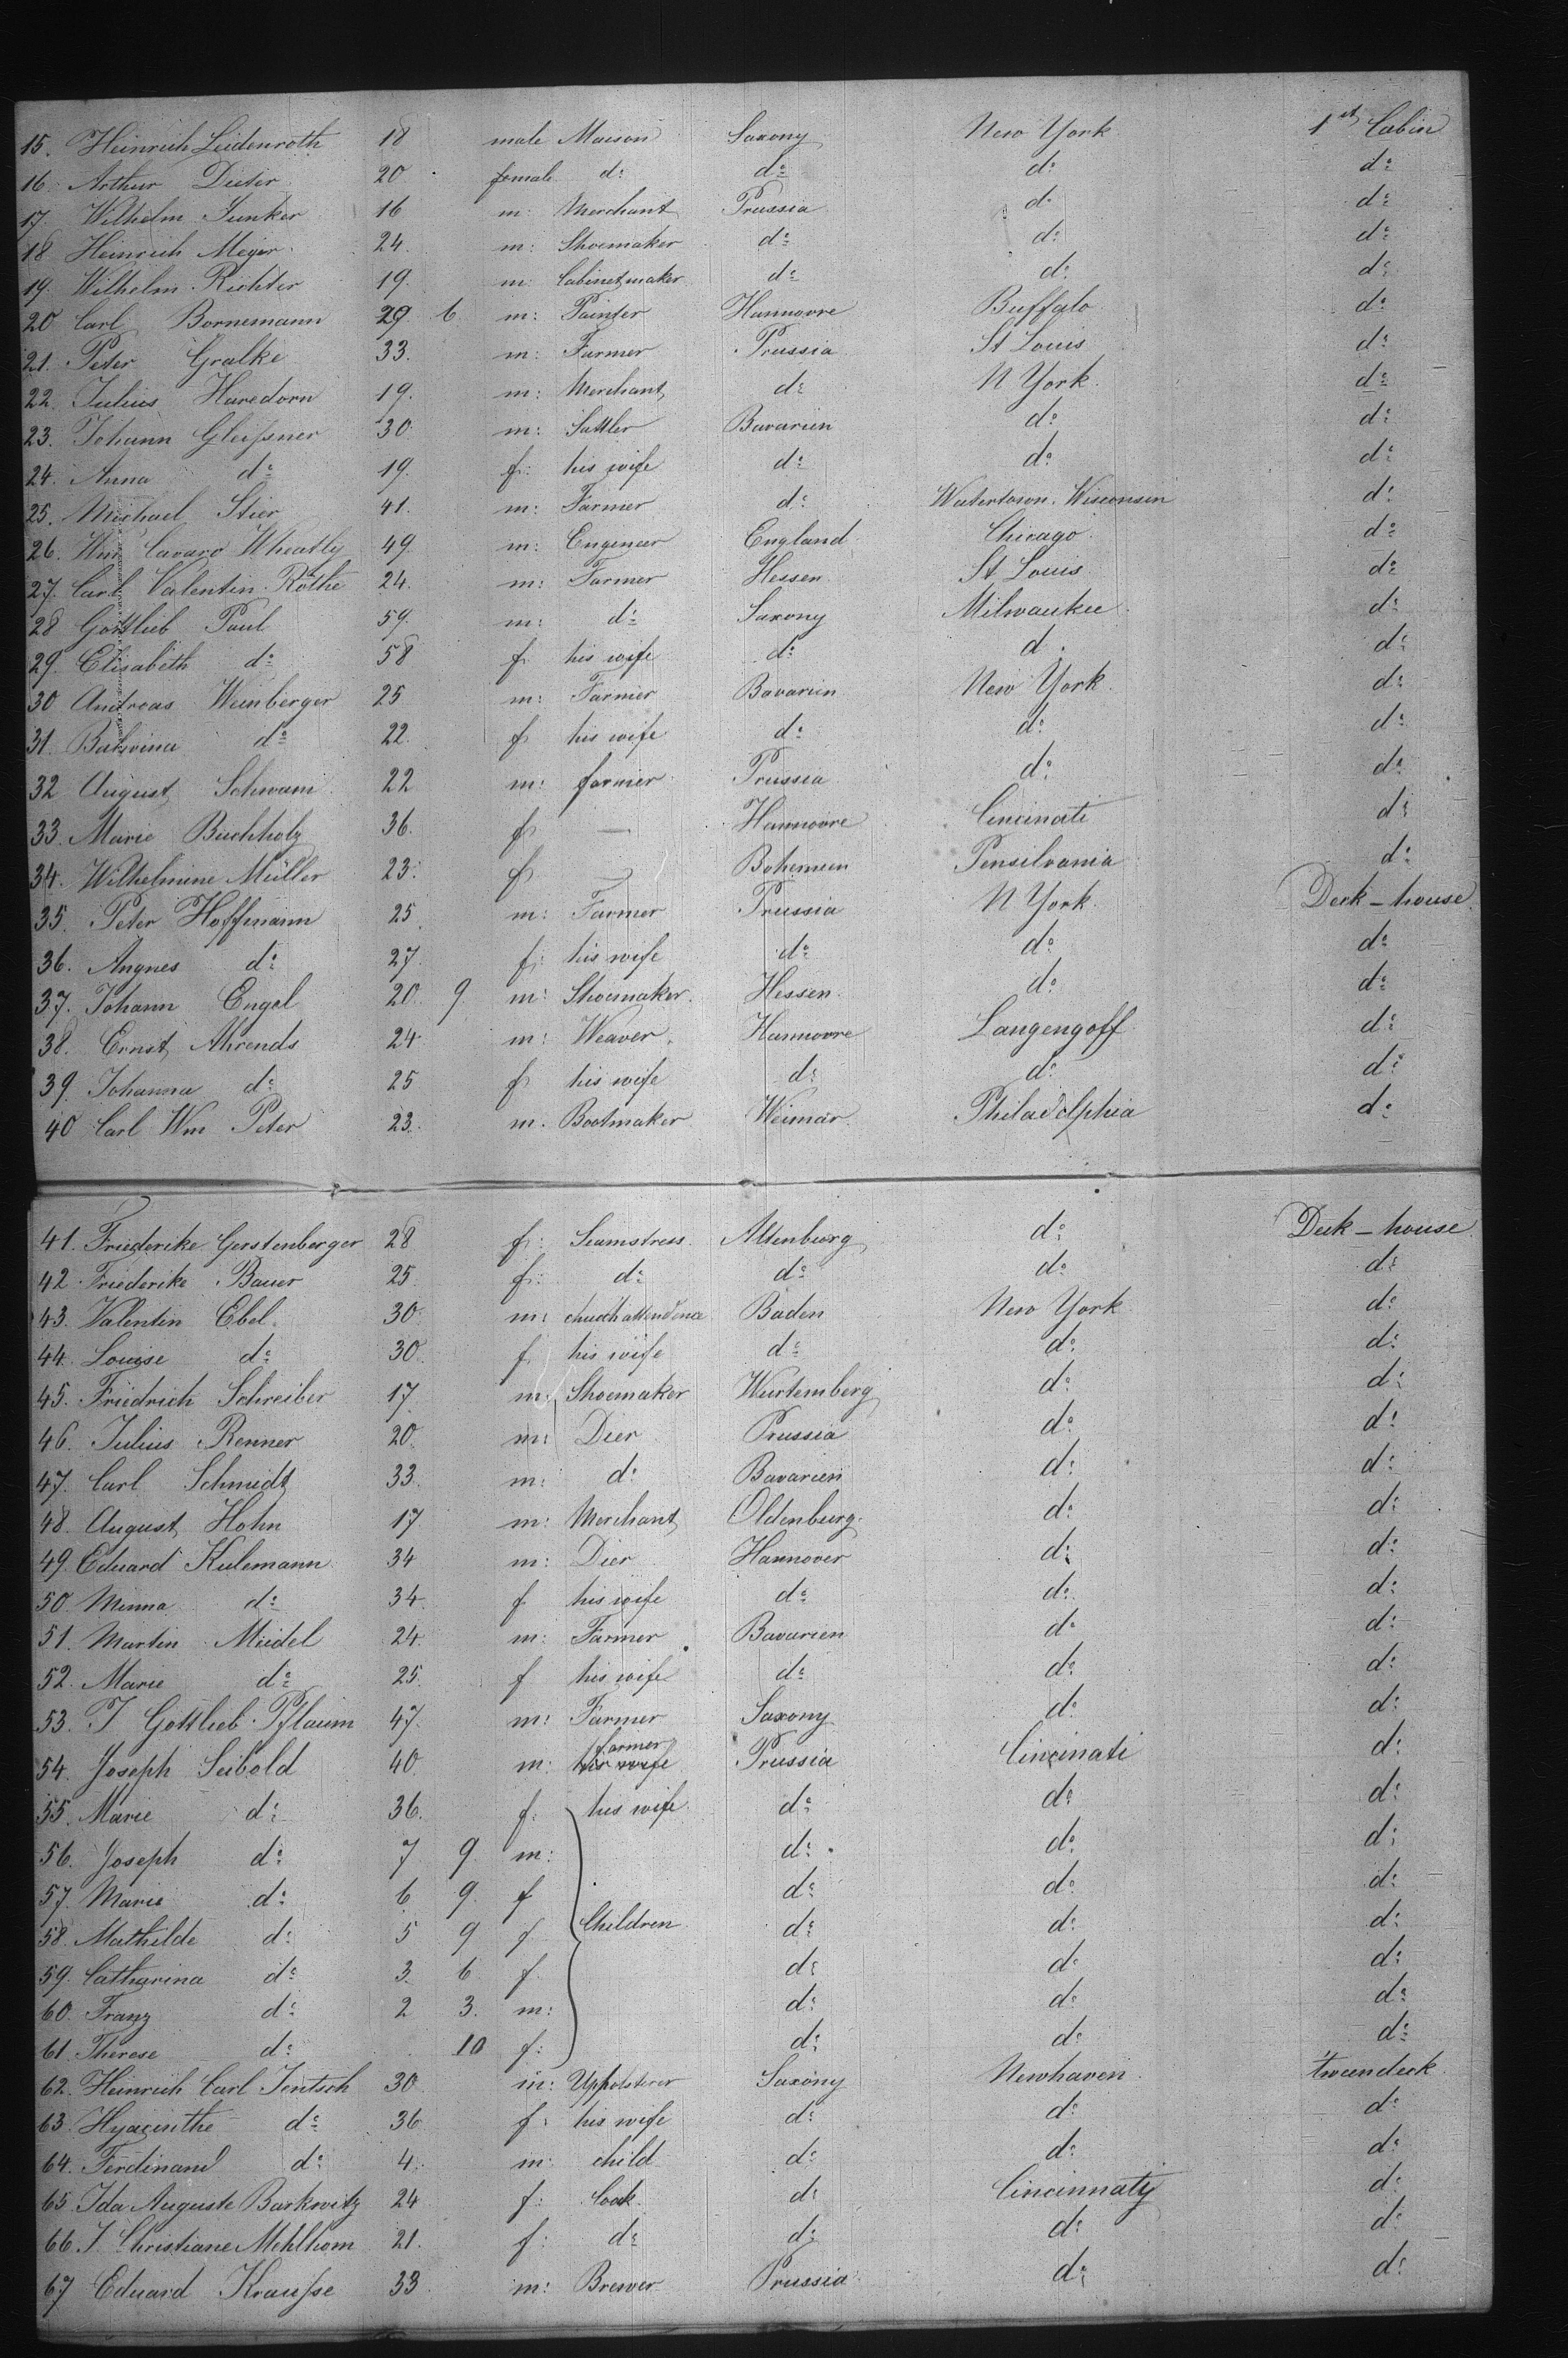 15. Heinrich Leidenroth 18 male Mason Saxony New York 1st Cabin
16. Arthur Dieter 20 female do: do: do: do:
17 Wilhelm Junker 16 m: Merchant Prussia do: do:
18 Heinrich Meyer 24. m: Shoemaker do: do: do:
19. Wilhelm Richter 19. m: Cabinetmaker do: do: do:
20 Carl Bornemann 29 6 m: Painter Hannovre Buffalo do:
21. Peter Gralke 33. m: Farmer Prussia St Louis do:
22. Julius Haredorn 19. m: Merchant do: N York. do:
23. Johann Gleißner 30. m: Sattler Bavarien do: do:
24. Anna do: 19. f: his wife do: do: do:
25. Michael Stier 41. m: Farmer do: Watertown. Wisconsin do:
26. Wm Wheatly 49. m: Engeneer England Chicago do:
27. Carl Valentin Röthe 24. m: Farmer Hessen St. Louis do:
28 Gottlieb Paul 59. m: do: Saxony Milwaukee do:
29. Elisabeth do: 58 f. his wife do: do. do:
30 Andreas Weinberger 25 m: Farmer Bavarien New York. do:
31. do: 22. f his wife do: do: do:
32 August Schwam 22 m: farmer Prussia do: do:
33. Marie Buchholz 36. f — Hannovre Cincinati do:
34. Wilhelmine Müller 23. f — Bohemien Pensilvania do:
35. Peter Hoffmann 25. m: Farmer Prussia N York. Deck-house.
36. Angnes do: 27. f: his wife do: do: do:
37. Johann Engel 20. 9. m: Shoemaker. Hessen do: do:
38. Ernst Ahrends 24 m: Weaver. Hannovre Langengoff do:
39. Johanna do: 25 f his wife do: do: do:
40 Carl Wm Peter 23. m. Bootmaker Weimar. Philadelphia do:
41. Friederike Gerstenberger 28 f: Seamstress Altenburg do: Deck-house
42 Friederike Bauer 25. f: do: do: do: do:
43. Valentin Ebel. 30. m: Baden New York do:
44. Louise do: 30 f his wife do: do: do:
45. Friedrich Schreiber 17. m: Shoemaker Wurtemberg do: do:
46. Julius Renner 20. m: Dier Prussia do: do:
47. Carl Schmidt 33. m: do: Bavarien do: do:
48. August Hohn 17. m: Merchant Oldenburg. do: do:
49. Eduard Kulemann 34 m: Dier Hannover do: do:
50. Minna do: 34. f his wife do: do: do:
51. Martin Meidel 24. m: Farmer Bavarien do: do:
52. Marie do: 25. f his wife do: do: do:
53. J Gottlieb Pflaum 47. m: Farmer Saxony do: do:
54. Joseph Seibold 40. m: farmer his wife Prussia Cincinati do:
55. Marie do: 36. f: his wife do: do: do:
56. Joseph do: 7 9. m: do: do: do:
57. Marie do: 6 9. f do: do: do:
58. Mathilde do: 5 9 f Children do: do: do:
59. Catharina do: 3. 6 f. do: do: do:
60. Franz do: 2 3. m: do: do: do:
61. Therese do: 10 f: do: do: do:
62. Heinrich Carl Jentsch 30 m: Uppolsterer Saxony Newhaven tweendeck
63 Hyacinthe do: 36 f: his wife do: do: do:
64. Ferdinand do: 4. m: child do: do: do:
65. Ida Auguste Barkowitz 24 f: Cook do: Cincinnaty do:
66. J. Christiane Mehlhorn 21. f: do: do: do: do:
67 Eduard Krauße 33 m: Brewer Prussia do: do: